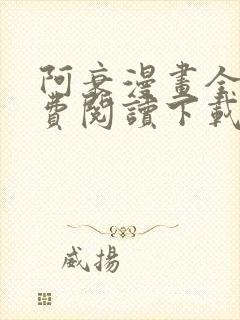 阿衰漫畫全
費閱讀下載
威揚